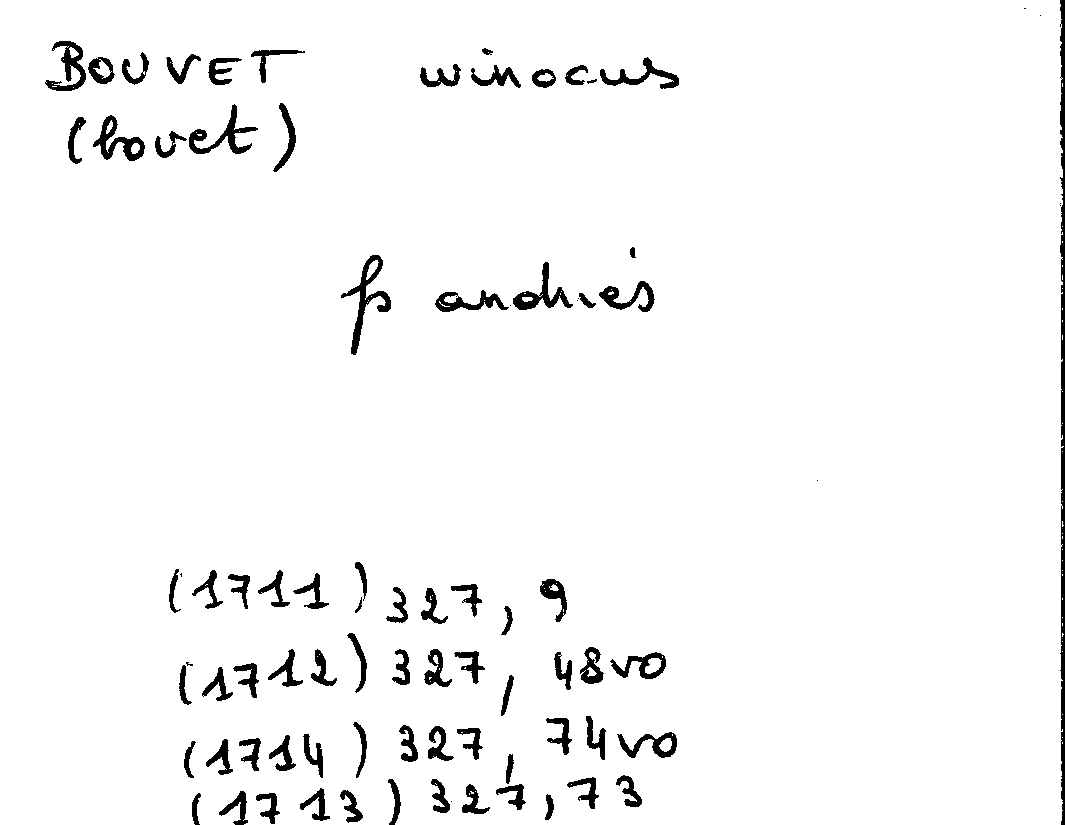 BOUVET winocus
(bovet)
fs andries
(1711) 327, 9
(1712) 327, 48vo
(1714) 327, 74vo
(1713) 327, 73